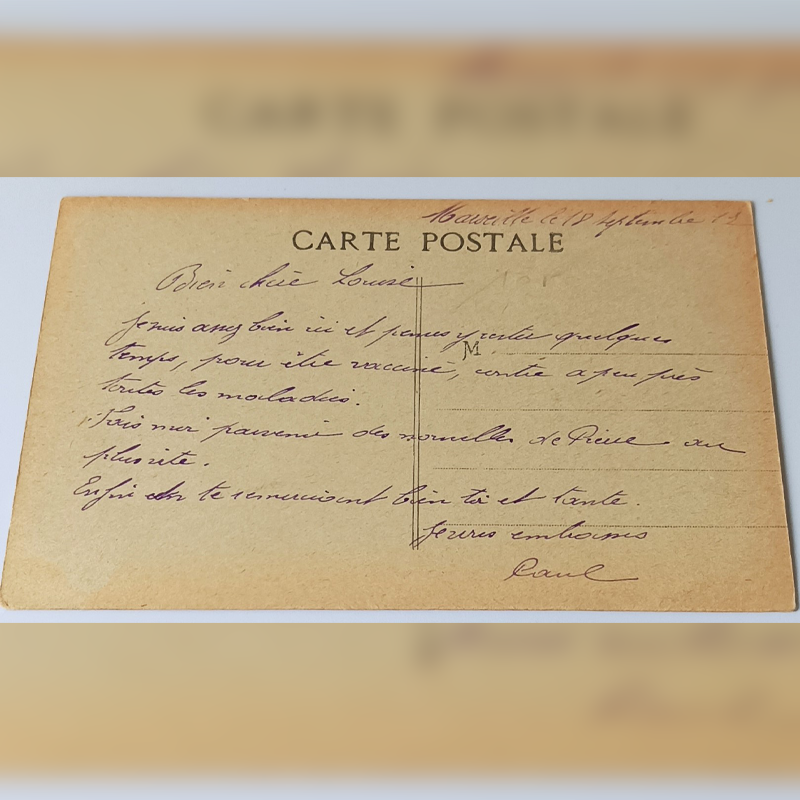 Marseille le 18 septembre
CARTE POSTALE
Bien chère Louise
Je suis assez bien ici et pense y rester quelques
M
temps, pour être vacciné, contre a peu près
toutes les maladies.
Fais moi parvenir des nouvelles de Pierre au
plus vite.
Enfin en te remerciant bien toi et tante.
Je vous embrasse
Paul